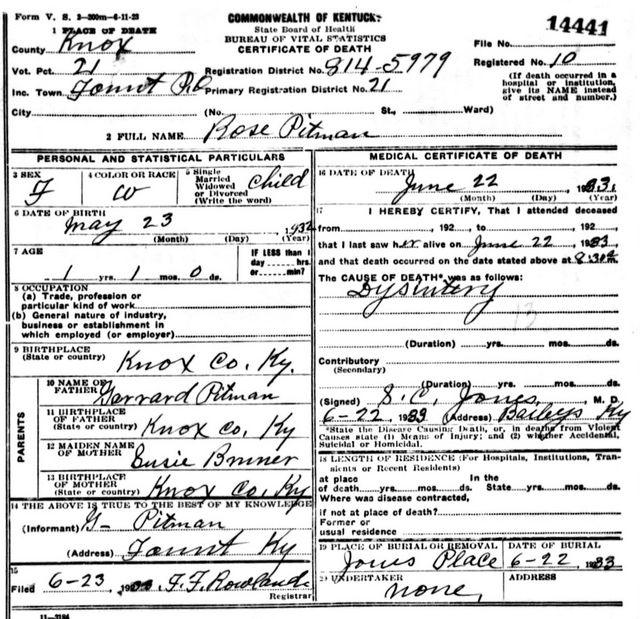 Form V. S. 2—200m—6-11-23
COMMONWEALTH OF KENTUCKY
State Board of Health
BUREAU OF VITAL STATISTICS
CERTIFICATE OF DEATH
14441
1 PLACE OF DEATH
County Knox
File No.
Vot. Pct. 21
Registration District No. 814-5979
Registered No. 10
Inc. Town Fount
Primary Registration District No. 21
(If death occurred in a hospital or institution, give its NAME instead of street and number.)
City (No. St., Ward)
2 FULL NAME Rose Pitman
PERSONAL AND STATISTICAL PARTICULARS
3 SEX F
4 COLOR OR RACE W
5 Single Married Widowed or Divorced (Write the word) Child
6 DATE OF BIRTH
May 23 1932
(Month) (Day) (Year)
7 AGE
1 yrs. 1 mos. 0 ds.
IF LESS than 1 day hrs. or min.?
8 OCCUPATION
(a) Trade, profession or particular kind of work
(b) General nature of industry, business or establishment in which employed (or employer)
9 BIRTHPLACE
(State or country) Knox Co. Ky.
PARENTS
10 NAME OF FATHER Garrard Pitman
11 BIRTHPLACE OF FATHER
(State or country) Knox Co. Ky
12 MAIDEN NAME OF MOTHER Susie Bruner
13 BIRTHPLACE OF MOTHER
(State or country) Knox Co. Ky
14 THE ABOVE IS TRUE TO THE BEST OF MY KNOWLEDGE
(Informant) G- Pitman
(Address) Fount Ky
15
Filed 6-23 1933 F. F. Rowland
Registrar
11—3184
MEDICAL CERTIFICATE OF DEATH
16 DATE OF DEATH
June 22 1933
(Month) (Day) (Year)
17 I HEREBY CERTIFY, That I attended deceased
from , 192 , to , 192 ,
that I last saw her alive on June 22 , 1933
and that death occurred on the date stated above at 8:30
The CAUSE OF DEATH* was as follows:
Dysintery
13
(Duration) yrs. mos. ds.
Contributory
(Secondary)
(Duration) yrs. mos. ds.
(Signed) S. C. Jones, M. D.
6-22 1933 (Address) Baileys Ky
*State the Disease Causing Death, or, in deaths from Violent Causes state (1) Means of Injury; and (2) whether Accidental, Suicidal or Homicidal.
18 LENGTH OF RESIDENCE (For Hospitals, Institutions, Transients or Recent Residents)
at place of death yrs. mos. ds. In the State yrs. mos. ds.
Where was disease contracted,
if not at place of death?
Former or usual residence
19 PLACE OF BURIAL OR REMOVAL
Jones Place
DATE OF BURIAL
6-22 1933
20 UNDERTAKER
none,
ADDRESS